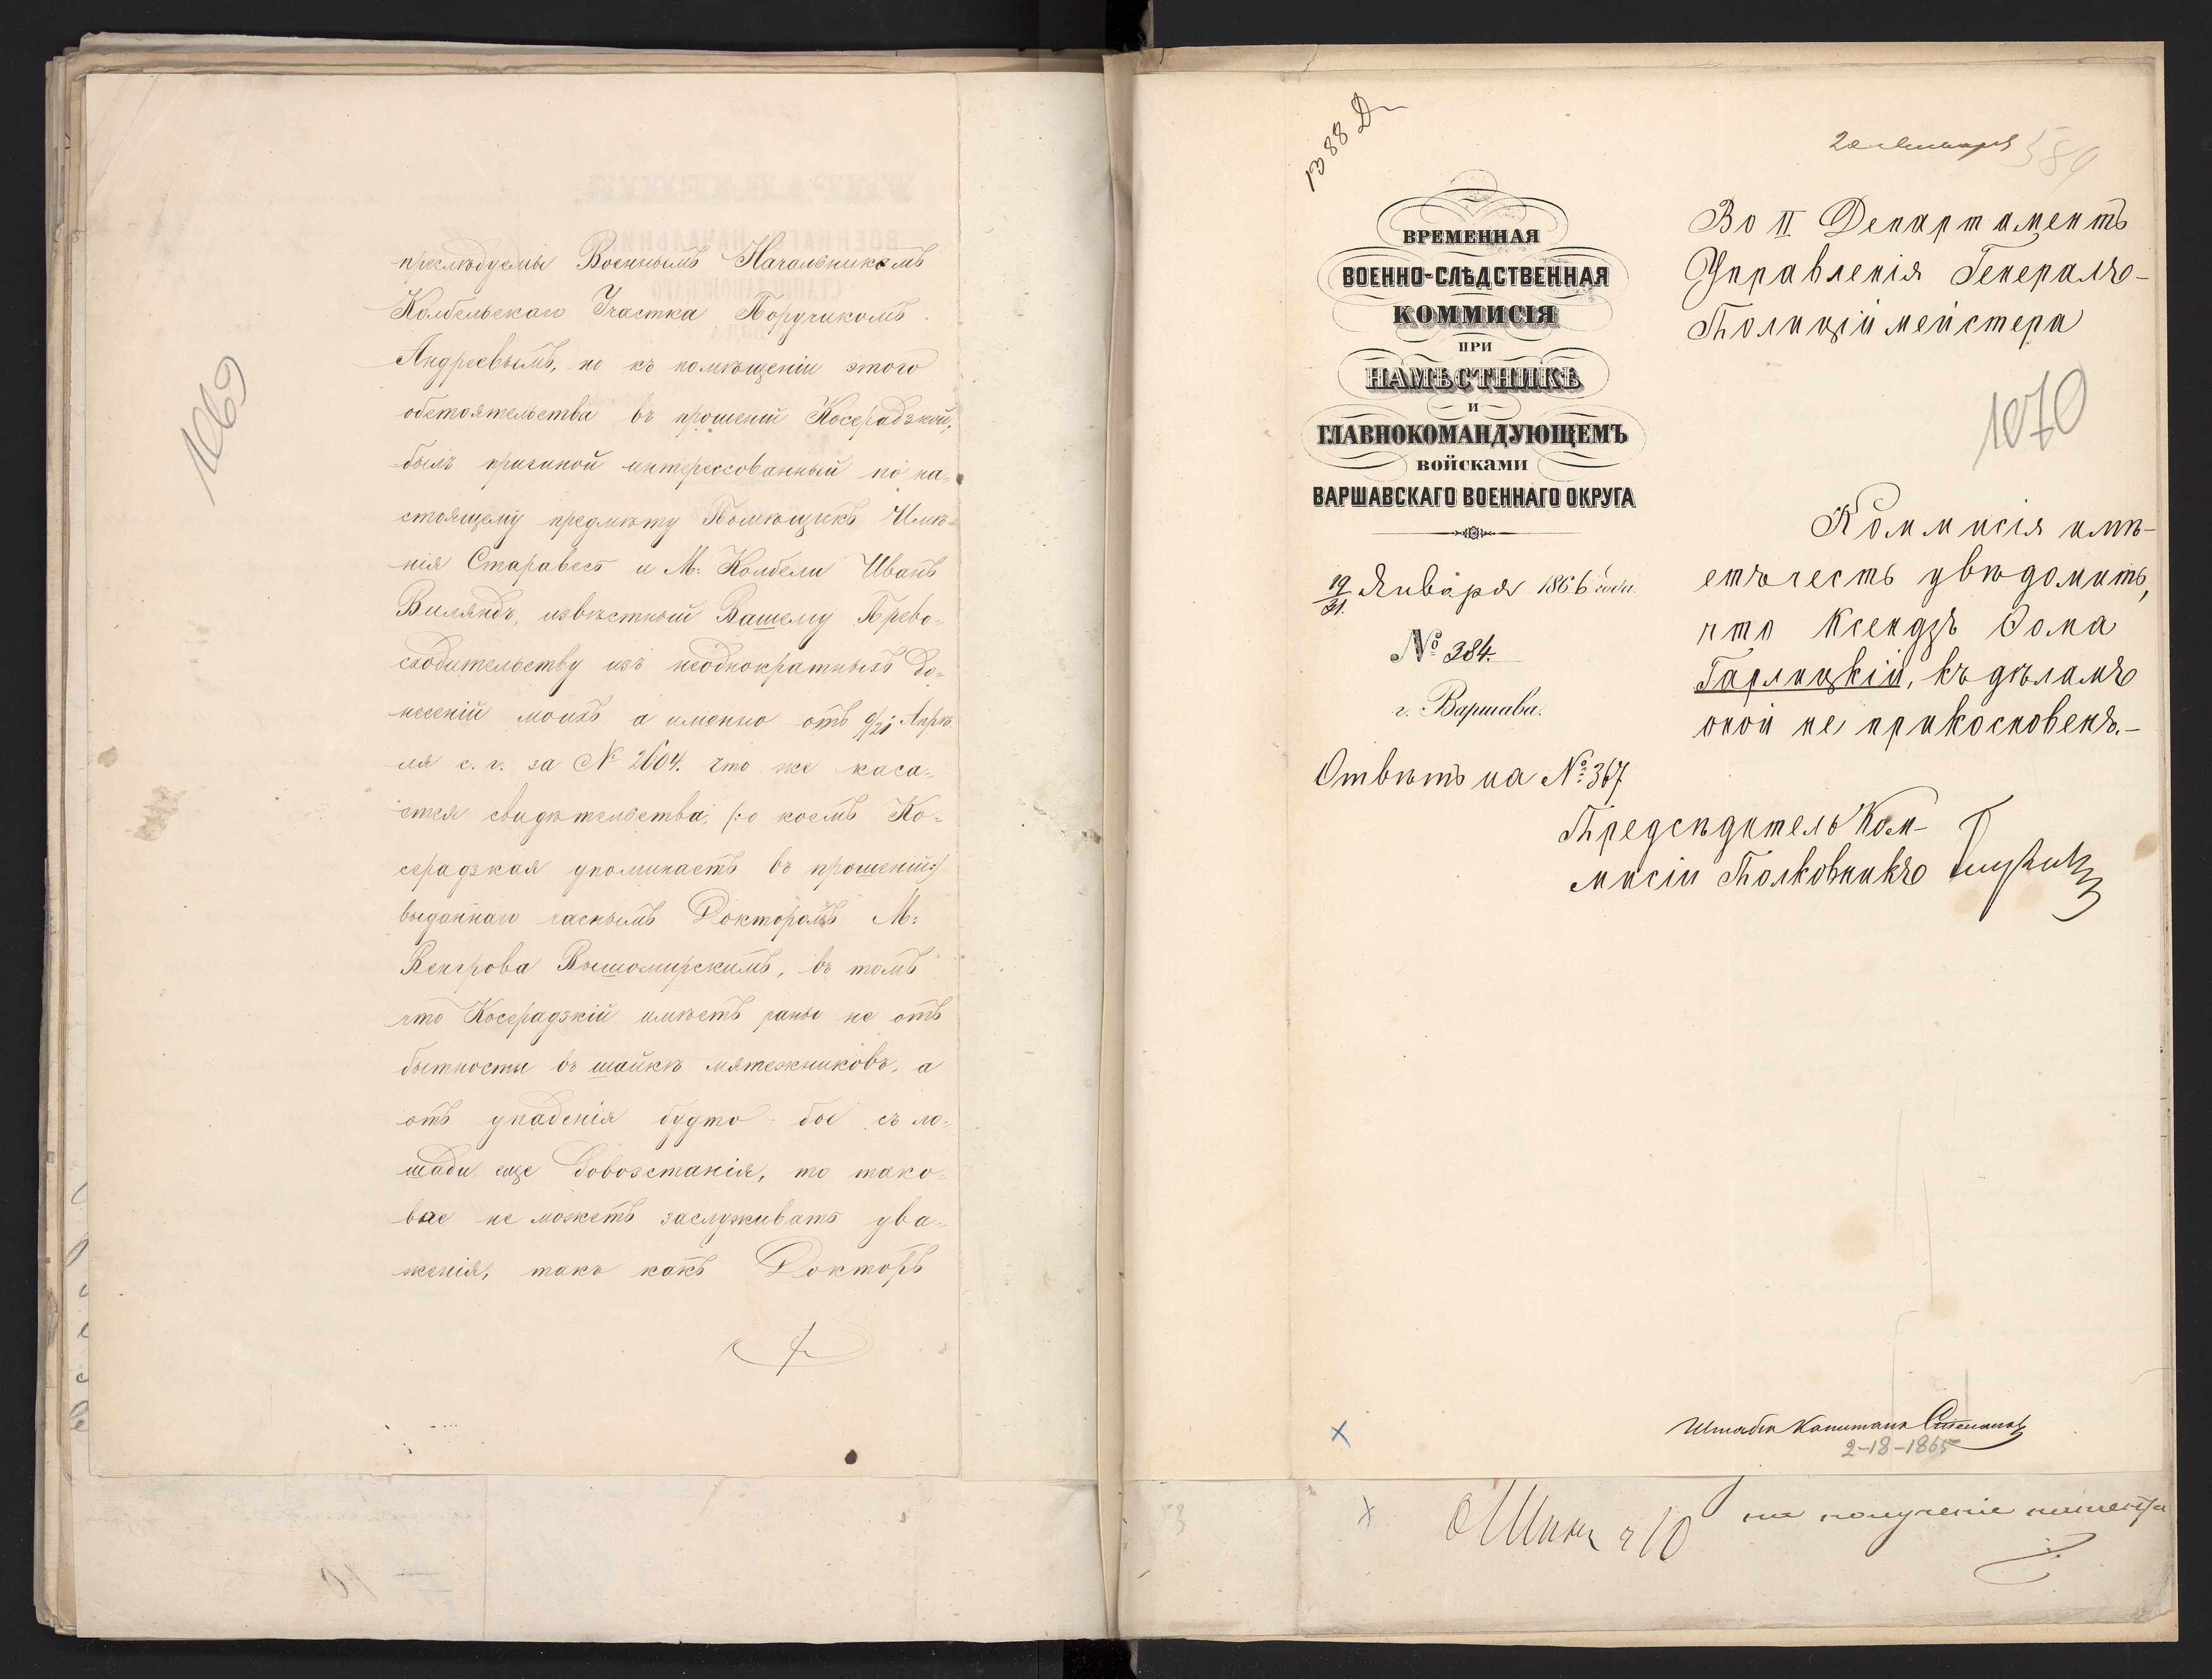 1069
преслѣдуемы Военнымъ Начальникомъ
Колбельскаго Участка Поручикомъ
Андреевымъ, но къ помѣщенію этого
обстоятельства въ прошеніи Косерадзкой,
былъ причиной интерессованный по на-
стоящему предмѣту Помѣщикъ Имѣ-
нія Старавесъ и М. Колбели Иванъ
Виляндъ, извѣстный Вашему Прево-
сходительству изъ неоднократныхъ до-
несеній моихъ а именно отъ 9/21 Апрѣ-
ля с. г. за № 2604. Что же каса-
ется свидѣтельства, /:о коемъ Ко-
серадзкая упоминаетъ въ прошеніи:/
выданнаго часнымъ Докторомъ М:
Венгрова Вышомирскимъ, въ томъ
что Косерадзкій имѣетъ раны не отъ
бытности въ шайкѣ мятежниковъ, а
отъ упаденія будто бы съ ло-
шади, еще довозстанія, то тако-
вое не можетъ заслуживать ува-
женія, такъ какъ Докторъ
1388
20 Января
589
ВРЕМЕННАЯ
ВОЕННО-СЛѢДСТВЕННАЯ
КОММИСІЯ
ПРИ
НАМѢСТНИКѢ
И
ГЛАВНОКОМАНДУЮЩЕМЪ
ВОЙСКАМИ
ВАРШАВСКАГО ВОЕННАГО ОКРУГА
19/31. Января 1866 года
№ 384.
г. Варшава.
Отвѣтъ на №: 367
Во II Департаментъ
Управленія Генералъ-
Полиціймейстера
1070
Коммисія имѣ-
етъ честь увѣдомить,
что Ксендзъ Ѳома
Гарлицкій, къ дѣламъ
оной не прикосновенъ.-
Предсѣдатель Ком-
мисіи Полковникъ
Штабсъ Капитанъ
2-18-1865
на полученіе